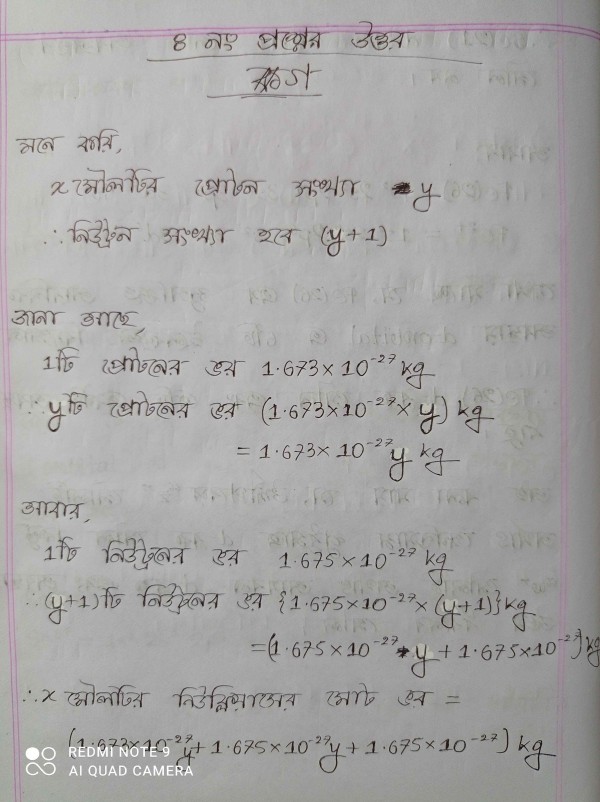 ৪ নং প্রশ্নের উত্তর
মনে করি,
x মৌলটির প্রোটন সংখ্যা y
∴ নিউট্রন সংখ্যা হবে (y+1)
জানা আছে,
1টি প্রোটনের ভর 1.673×10⁻²⁷ kg
∴ yটি প্রোটনের ভর (1.673×10⁻²⁷×y) kg
= 1.673×10⁻²⁷y kg
আবার,
1টি নিউট্রনের ভর 1.675×10⁻²⁷ kg
∴ (y+1)টি নিউট্রনের ভর {1.675×10⁻²⁷×(y+1)} kg
=(1.675×10⁻²⁷y + 1.675×10⁻²⁷) kg
∴ x মৌলটির নিউক্লিয়াসের মোট ভর =
(1.673×10⁻²⁷y + 1.675×10⁻²⁷y + 1.675×10⁻²⁷) kg
REDMI NOTE 9
AI QUAD CAMERA